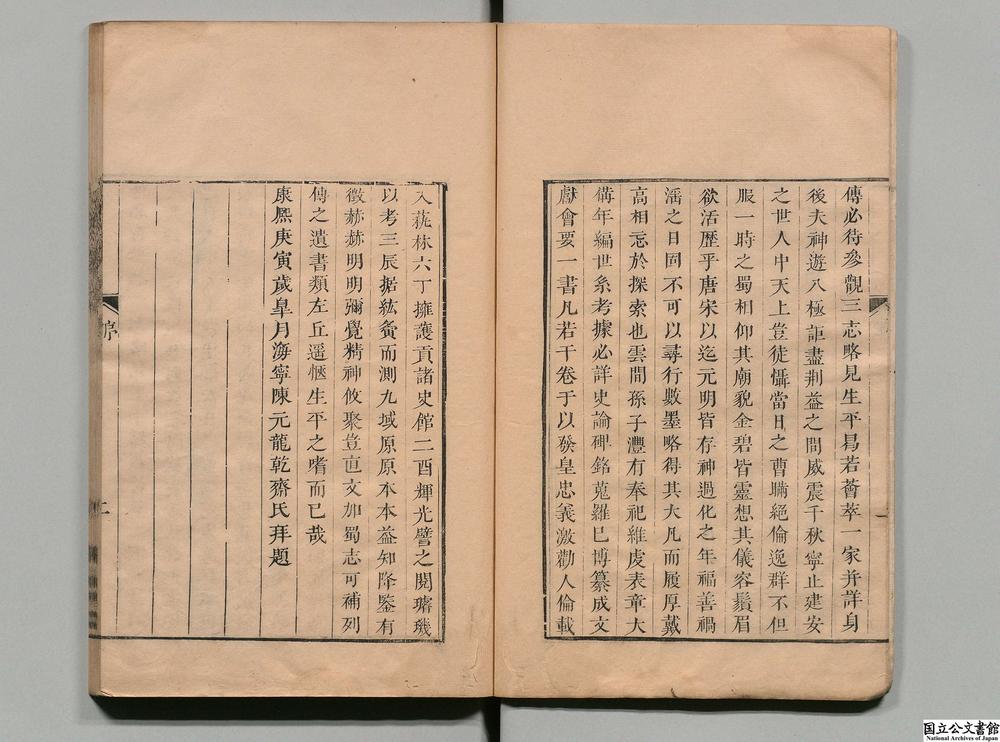 傳必待參觀三志略見生平曷若薈萃一家并詳身
後夫神遊八極詎盡荆益之間威震千秋寧止建安
之世人中天上豈徒懾當日之曹瞞絕倫逸群不但
服一時之蜀相仰其廟貌金碧皆靈想其儀容鬚眉
欲活歷乎唐宋以迄元明皆存神過化之年福善禍
滛之日固不可以尋行數墨略得其大凡而履厚戴
高相忘於探索也雲間孫子灃有奉祀維虔表章大
備年編世系考據必詳史論碑銘蒐羅已博纂成文
獻會要一書凡若干卷于以發皇忠義激勸人倫載
入蓺林六丁擁護貢諸史館二酉輝光譬之閱璿璣
以考三辰据紘䋫而測九域原原本本益知降鑒有
徵赫赫明明彌覺精神攸聚豈亶文加蜀志可補列
傳之遺書類左丘遥愜生平之嗜而已哉
康熙庚寅歲皐月海寧陳元龍乾齋氏拜題
序
二
国立公文書館
National Archives of Japan